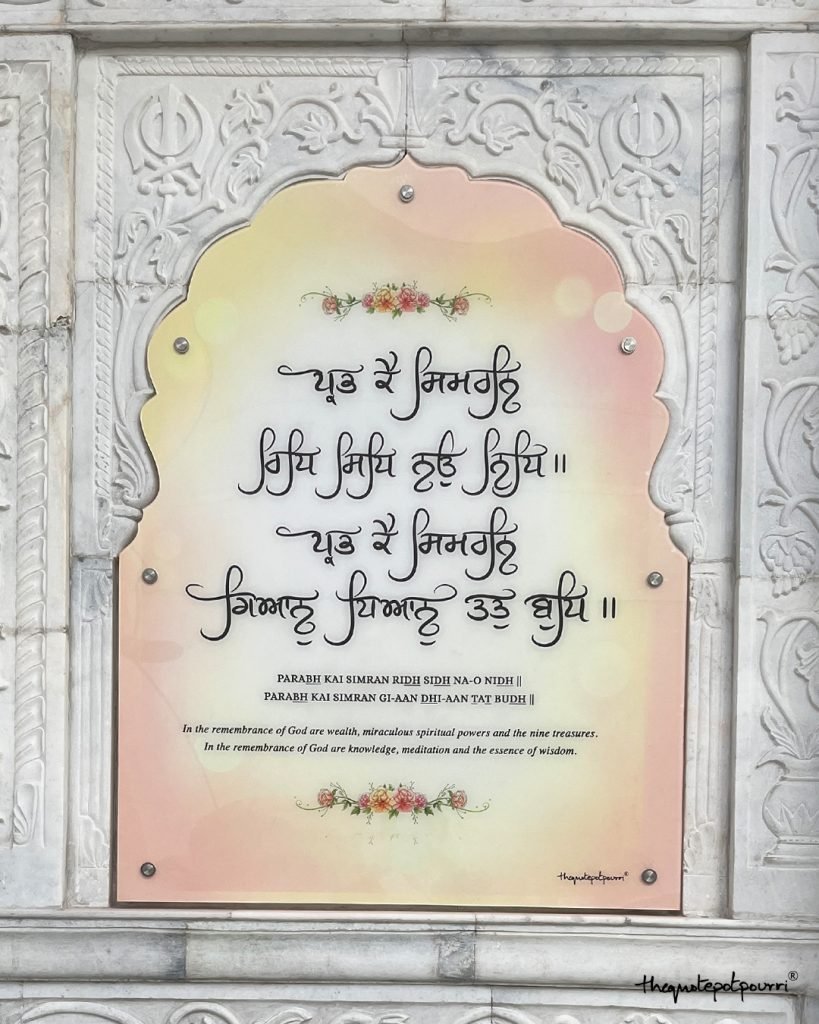 ਪ੍ਰਭ ਕੈ ਸਿਮਰਨਿ
ਰਿਧਿ ਸਿਧਿ ਨਉ ਨਿਧਿ ॥
ਪ੍ਰਭ ਕੈ ਸਿਮਰਨਿ
ਗਿਆਨੁ ਧਿਆਨੁ ਤਤੁ ਬੁਧਿ ॥
PARABH KAI SIMRAN RIDH SIDH NA-O NIDH ||
PARABH KAI SIMRAN GI-AAN DHI-AAN TAT BUDH ||
In the remembrance of God are wealth, miraculous spiritual powers and the nine treasures.
In the remembrance of God are knowledge, meditation and the essence of wisdom.
thequotepotpourri®
thequotepotpourri®